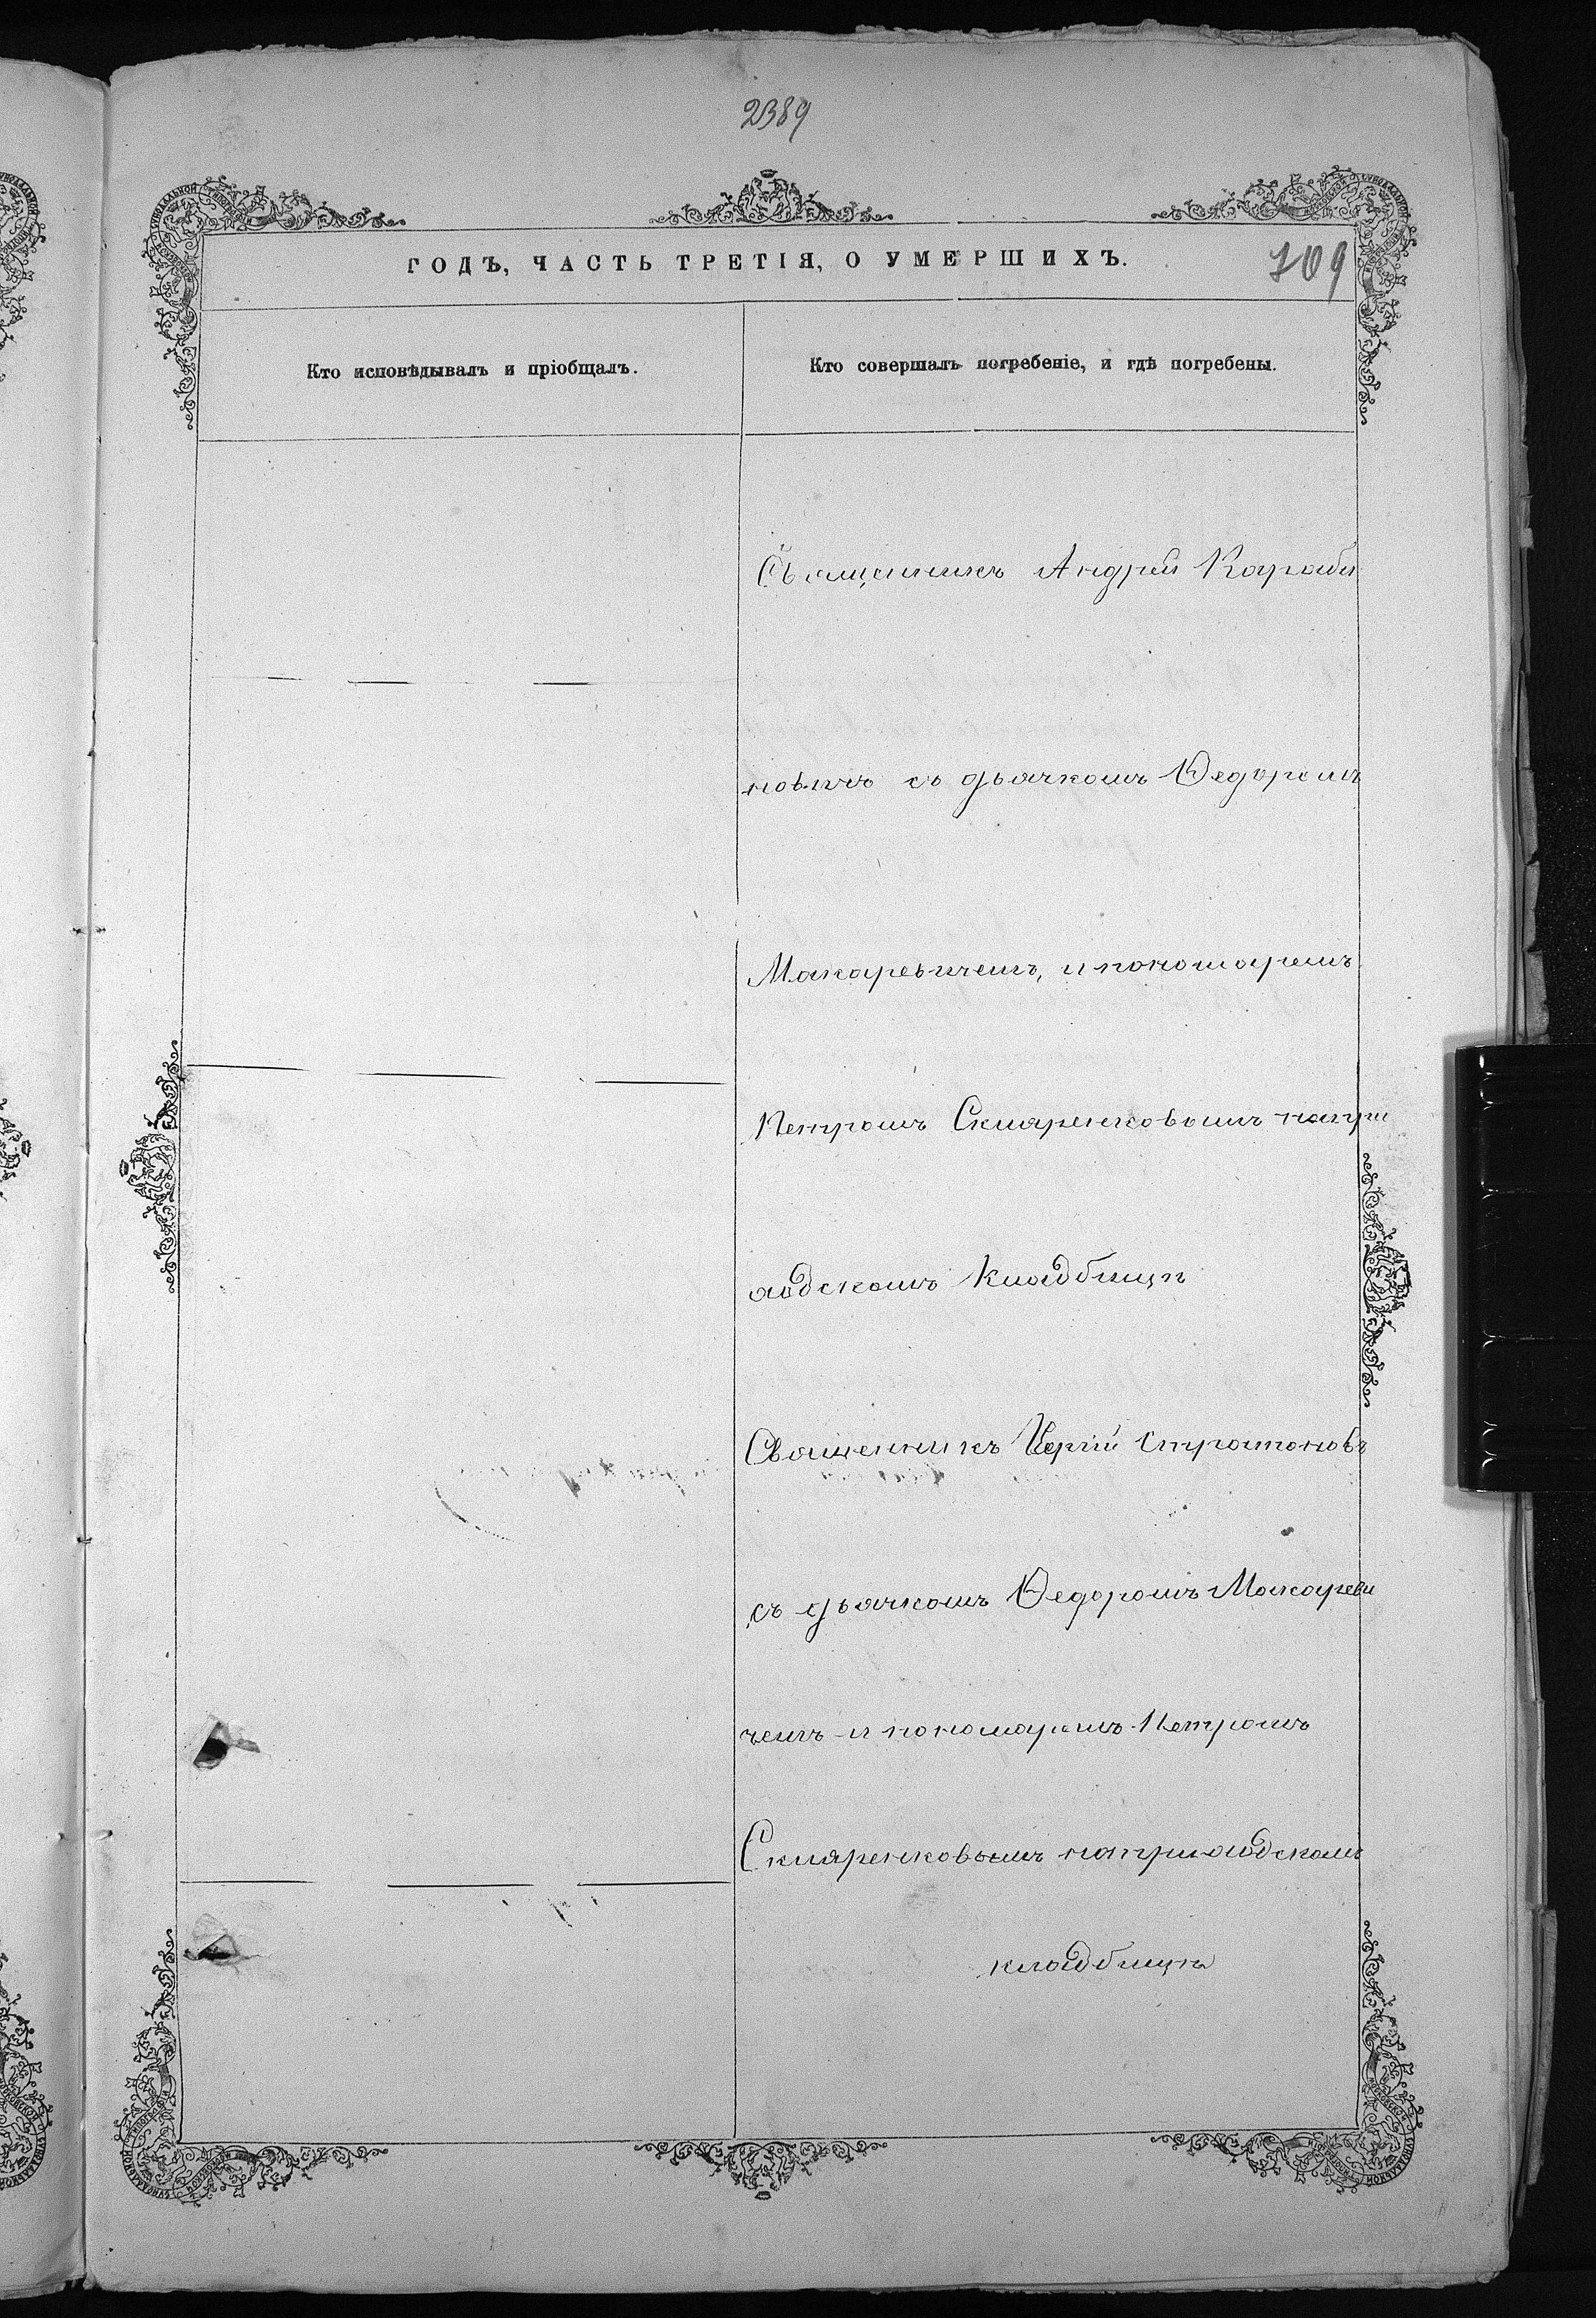 2389
ГОДЪ, ЧАСТЬ ТРЕТІЯ, О УМЕРШИХЪ.
709
Кто исповѣдывалъ и пріобщалъ.
Кто совершалъ погребеніе, и гдѣ погребены.
Священникъ Андрей Караби
новичъ съ дьячкомъ Ѳедоромъ
Макаревичемъ, и пономаремъ
Петромъ Скляренковымъ наприх
одскомъ Кладбищѣ
Священникъ Стратоновъ
съ дьячкомъ Ѳедоромъ Макареви
чемъ и пономаремъ Петромъ
Скляренковымъ наприходскомъ
кладбищѣ